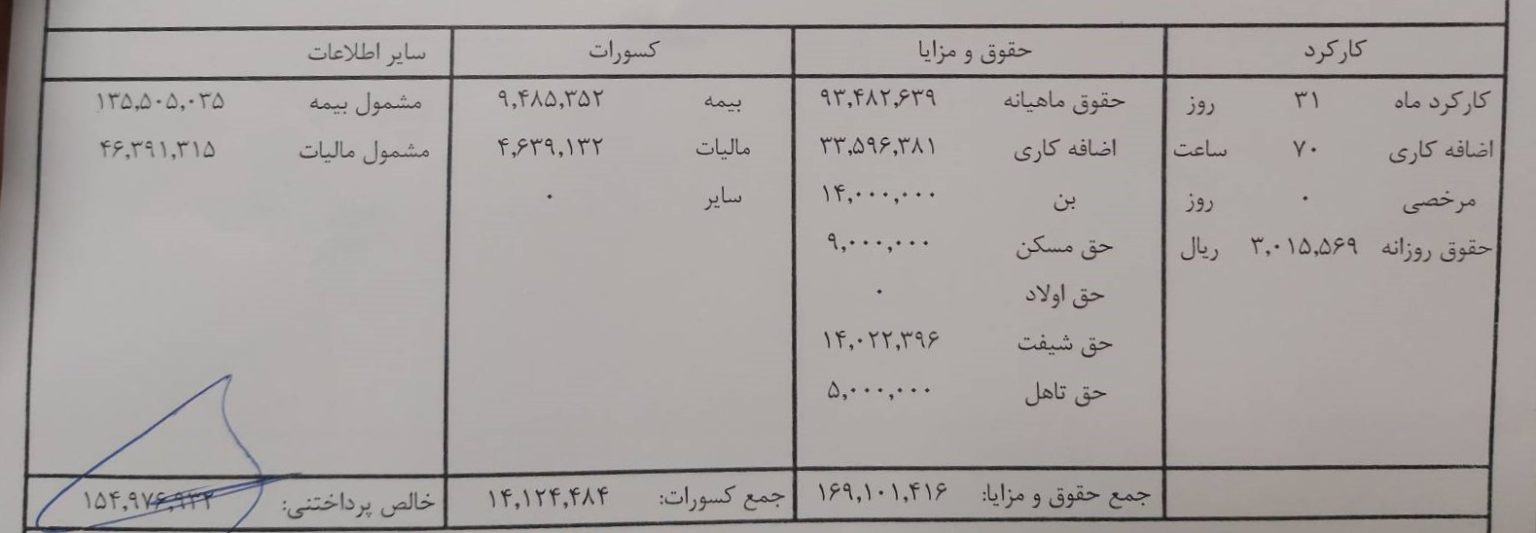 کارکرد حقوق و مزایا کسورات سایر اطلاعات
کارکرد ماه ۳۱ روز حقوق ماهیانه ۹۳,۴۸۲,۶۳۹ بیمه ۹,۴۸۵,۳۵۲ مشمول بیمه ۱۳۵,۵۰۵,۰۳۵
اضافه کاری ۷۰ ساعت اضافه کاری ۳۳,۵۹۶,۳۸۱ مالیات ۴,۶۳۹,۱۳۲ مشمول مالیات ۴۶,۳۹۱,۳۱۵
مرخصی ۰ روز بن ۱۴,۰۰۰,۰۰۰ سایر ۰
حقوق روزانه ۳,۰۱۵,۵۶۹ ریال حق مسکن ۹,۰۰۰,۰۰۰
حق اولاد ۰
حق شیفت ۱۴,۰۲۲,۳۹۶
حق تاهل ۵,۰۰۰,۰۰۰
جمع حقوق و مزایا: ۱۶۹,۱۰۱,۴۱۶ جمع کسورات: ۱۴,۱۲۴,۴۸۴ خالص پرداختنی: ۱۵۴,۹۷۶,۹۳۲